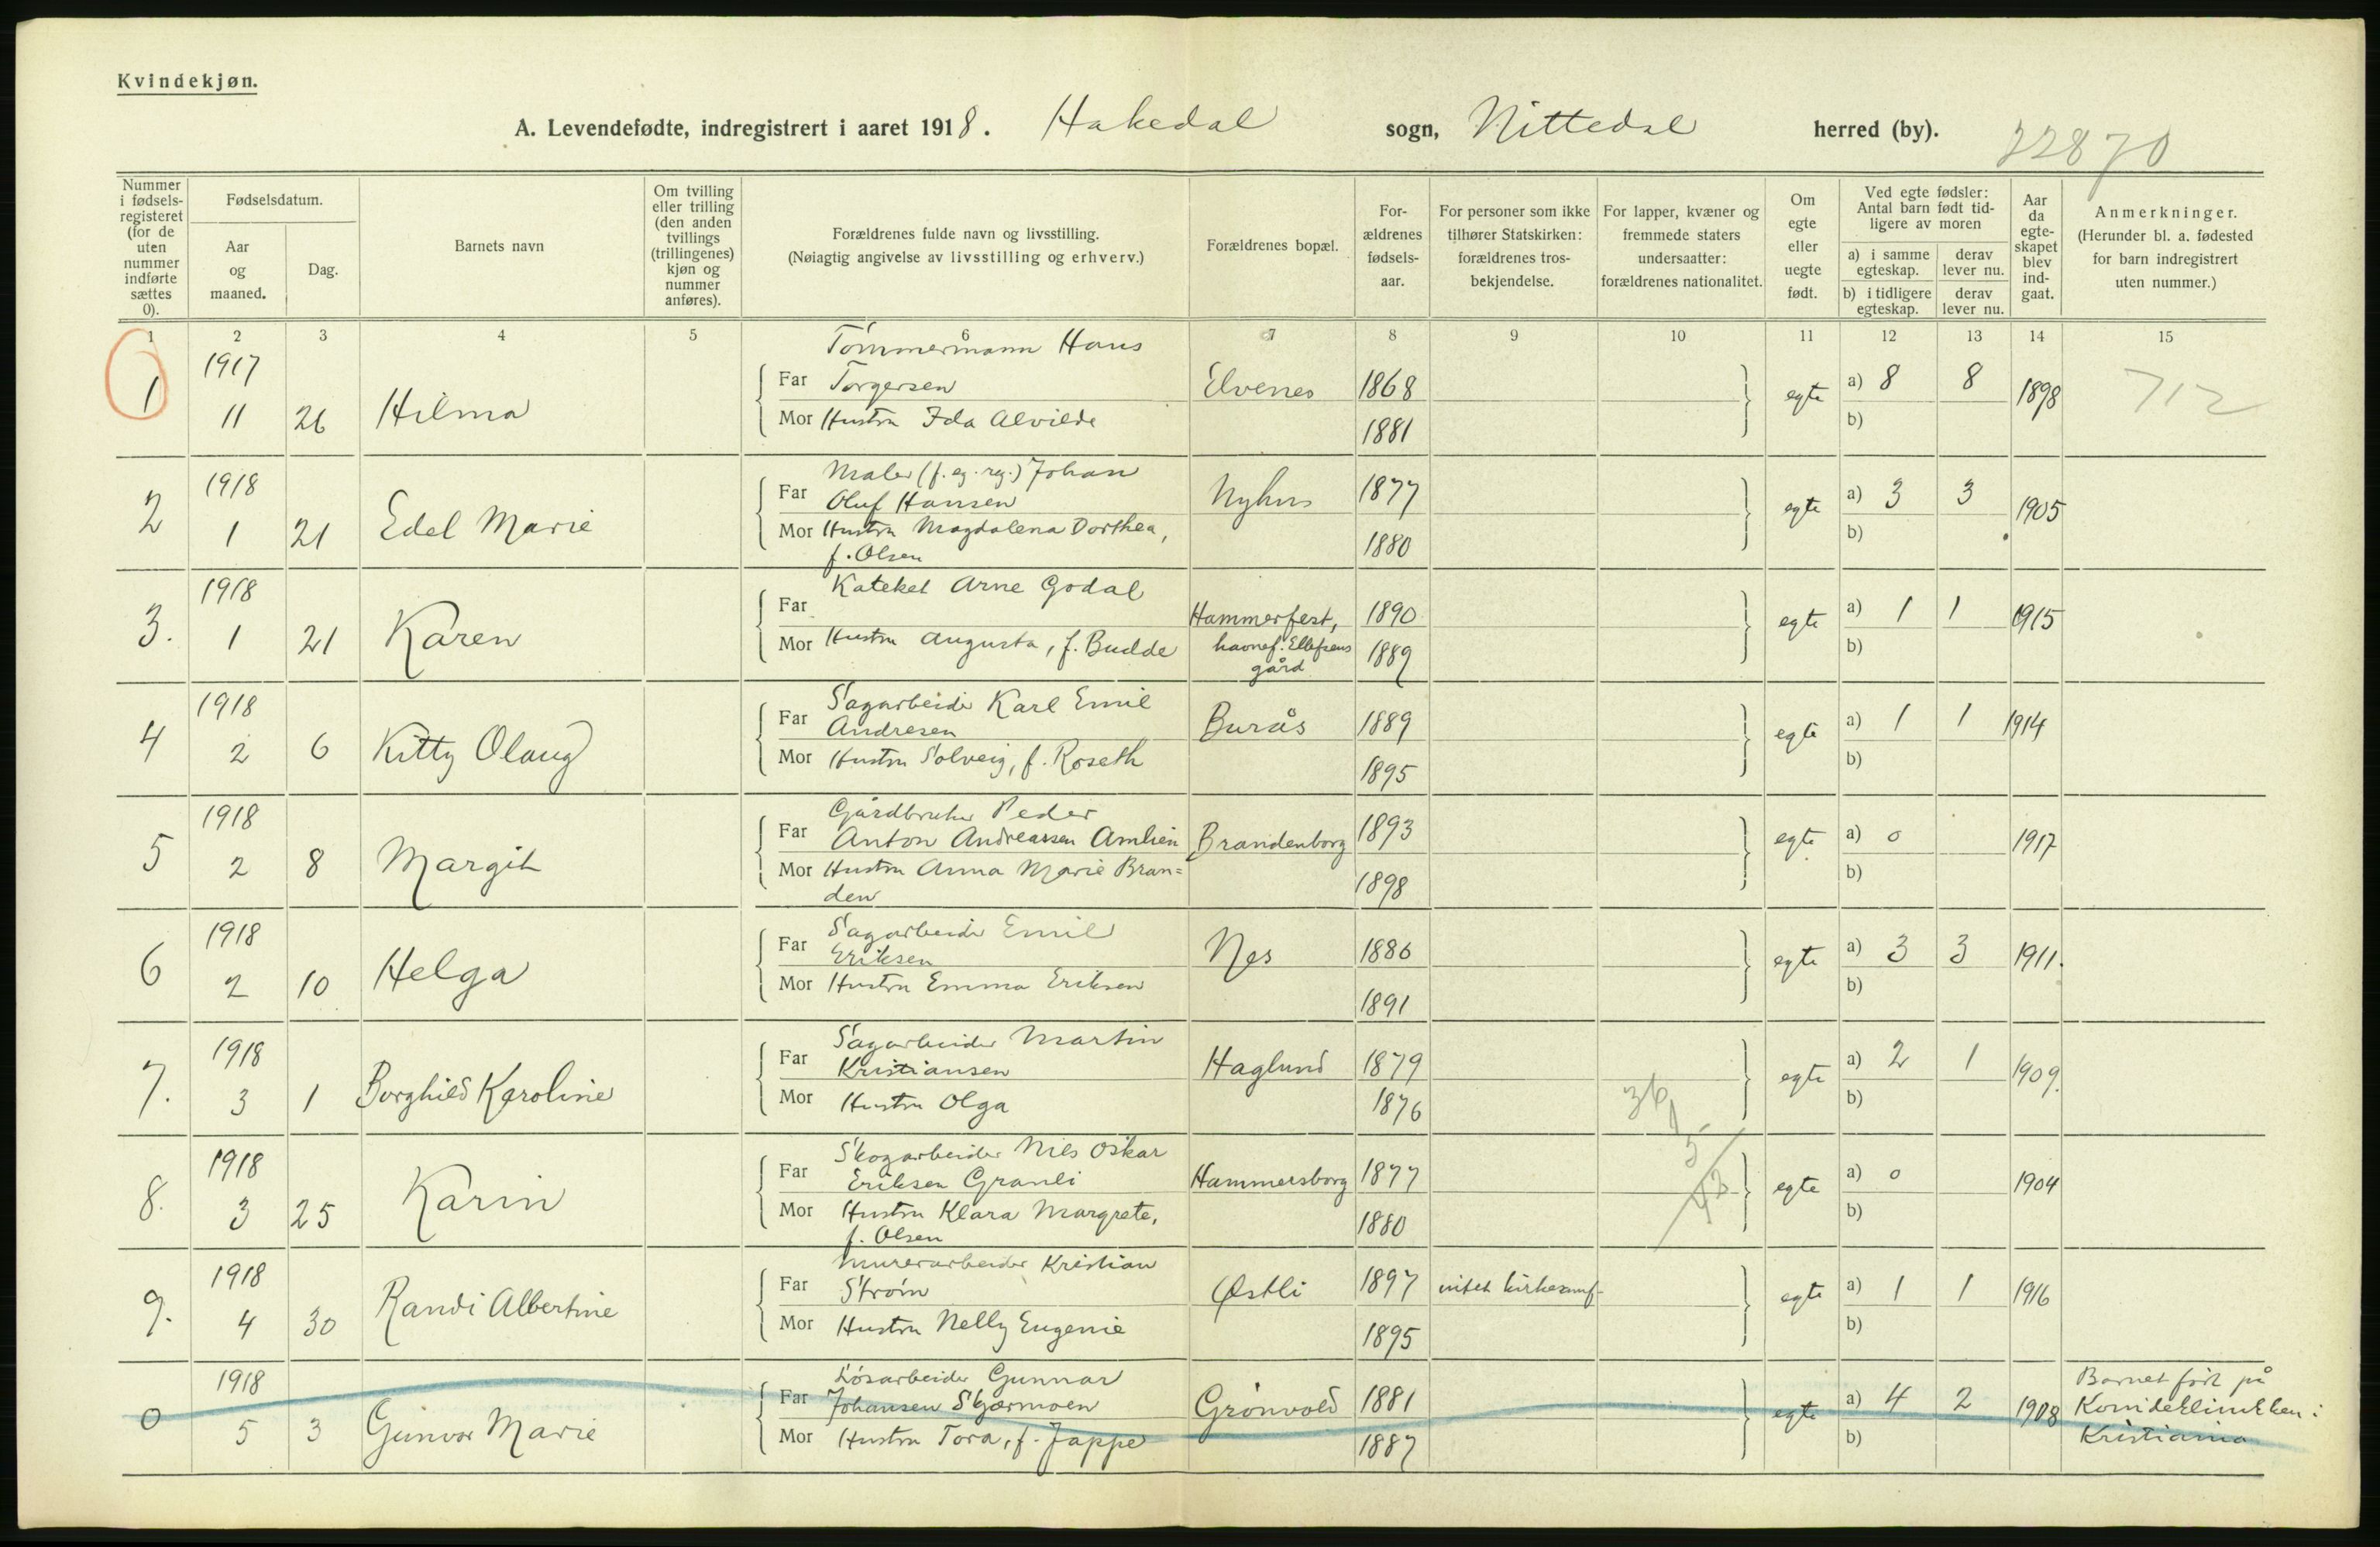 Kvindekjøn.
A. Levendefødte, indregistrert i aaret 1918. Hakedal sogn, Nittedal herred (by).
22870
Nummer i fødselsregisteret (for de uten nummer indførte sættes 0).
Fødselsdatum.
Aar og maaned.
Dag.
Barnets navn
Om tvilling eller trilling (den anden tvillings (trillingenes) kjøn og nummer anføres).
Forældrenes fulde navn og livsstilling.
(Nøiagtig angivelse av livsstilling og erhverv.)
Forældrenes bopæl.
Forældrenes fødselsaar.
For personer som ikke tilhører Statskirken: forældrenes trosbekjendelse.
For lapper, kvæner og fremmede staters undersaatter: forældrenes nationalitet.
Om egte eller uegte født.
Ved egte fødsler: Antal barn født tidligere av moren
a) i samme egteskap. derav lever nu.
b) i tidligere egteskap. derav lever nu.
Aar da egteskapet blev indgaat.
Anmerkninger.
(Herunder bl. a. fødested for barn indregistrert uten nummer.)
1 2 3 4 5 6 7 8 9 10 11 12 13 14 15
1 1917 11 26 Hilma
Tømmermann Hans
Far Torgersen Elvenes 1868
Mor Hustru Ida Alvilde 1881
egte a) 8 8 1898 712
b)
2 1918 1 21 Edel Marie
Maler (f. eg. reg.) Johan
Far Oluf Hansen Nyhus 1877
Mor Hustru Magdalena Dorthea,
f. Olsen 1880
egte a) 3 3 1905
b)
3. 1918 1 21 Karen
Kateket Arne Godal
Far Hammerfest, 1890
Mor Hustru Augusta, f. Budde havnef. Ellefsens gård 1889
egte a) 1 1 1915
b)
4 1918 2 6 Kitty Olaug
Sagarbeider Karl Emil
Far Andresen Burås 1889
Mor Hustru Solveig, f. Roseth 1895
egte a) 1 1 1914
b)
5 1918 2 8 Margit
Gårdbruker Peder
Far Anton Andreassen Amlien Brandenborg 1893
Mor Hustru Anna Marie Bran=
den 1898
egte a) 0 1917
b)
6 1918 2 10 Helga
Sagarbeider Emil
Far Eriksen Nes 1886
Mor Hustru Emma Eriksen 1891
egte a) 3 3 1911.
b)
7. 1918 3 1 Borghild Karoline
Sagarbeider Martin
Far Kristiansen Haglund 1879
Mor Hustru Olga 1876
egte a) 2 1 1909.
b)
36
8. 1918 3 25 Karin
Skogarbeider Nils Oskar
Far Eriksen Granli Hammersborg 1877
Mor Hustru Klara Margrete,
f. Olsen 1880
egte a) 0 1904
b)
9. 1918 4 30 Randi Albertine
Murerarbeider Kristian
Far Strøm Østli 1897 intet kirkesamf.
Mor Hustru Nelly Eugenie 1895
egte a) 1 1 1916
b)
0 1918 5 3 Gunvor Marie
Løsarbeider Gunnar
Far Johansen Skjærmoen Grønvold 1881
Mor Hustru Tora, f. Jappe 1887
egte a) 4 2 1908
b)
Barnet født på
Kvindeklinikken i
Kristiania